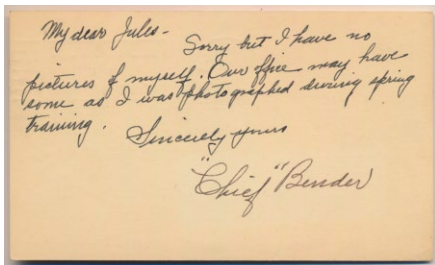 My dear Jules-
Sorry but I have no
pictures of myself. Our office may have
some as I was photographed during spring
training.
Sincerely yours
"Chief" Bender